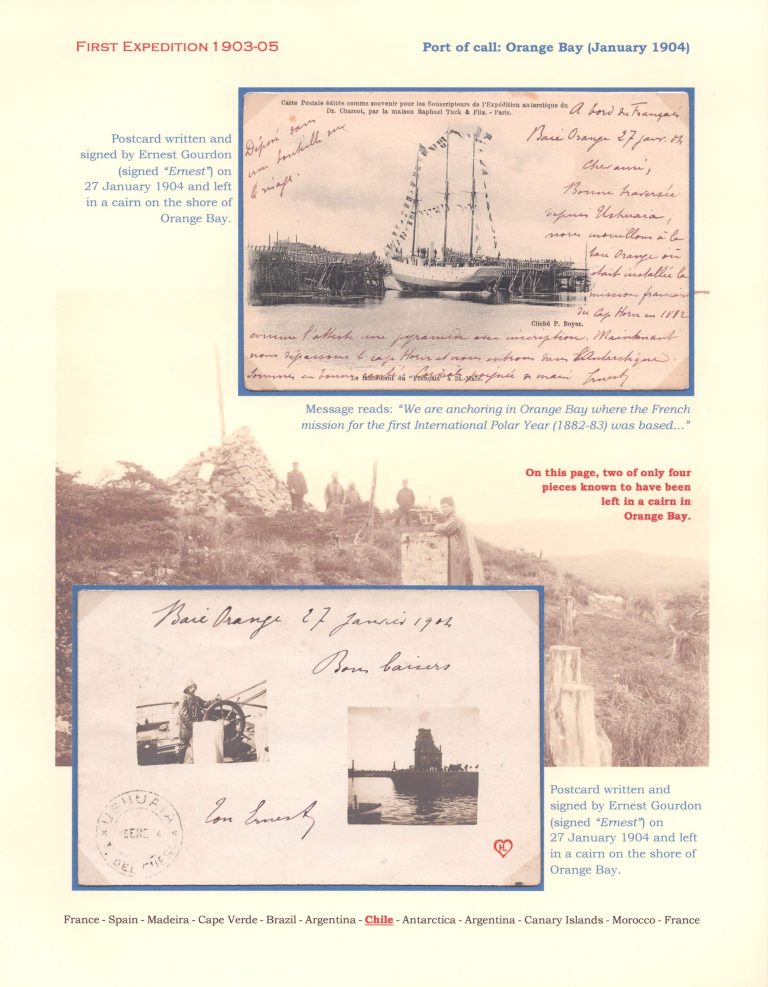 FIRST EXPEDITION 1903-05
Port of call: Orange Bay (January 1904)
Postcard written and
signed by Ernest Gourdon
(signed “Ernest”) on
27 January 1904 and left
in a cairn on the shore of
Orange Bay.
Carte Postale éditée comme souvenir pour les Souscripteurs de l'Expédition antarctique du
Dr. Charcot, par la maison Raphael Tuck & Fils. - Paris.
Déposé dans
une bouteille au
rivage.
A bord du Français
Baie Orange 27 janv. 04
Cher ami,
Bonne traversée
depuis Ushuaia,
nous mouillons à la
baie Orange où
était installée la
mission française
du Cap Horn en 1882
Cliché P. Boyer.
comme l'atteste une pyramide avec inscription. Maintenant
nous dépassons le cap Horn et nous entrons dans l'Antarctique.
Sommes en bonne santé. Cordiale poignée de main Ernest
Le lancement du "Français" à St-Malo.
Message reads: “We are anchoring in Orange Bay where the French
mission for the first International Polar Year (1882-83) was based...”
On this page, two of only four
pieces known to have been
left in a cairn in
Orange Bay.
Baie Orange 27 janvier 1904
Bons baisers
Ton Ernest
USHUAIA
Postcard written and
signed by Ernest Gourdon
(signed “Ernest”) on
27 January 1904 and left
in a cairn on the shore of
Orange Bay.
France - Spain - Madeira - Cape Verde - Brazil - Argentina - Chile - Antarctica - Argentina - Canary Islands - Morocco - France